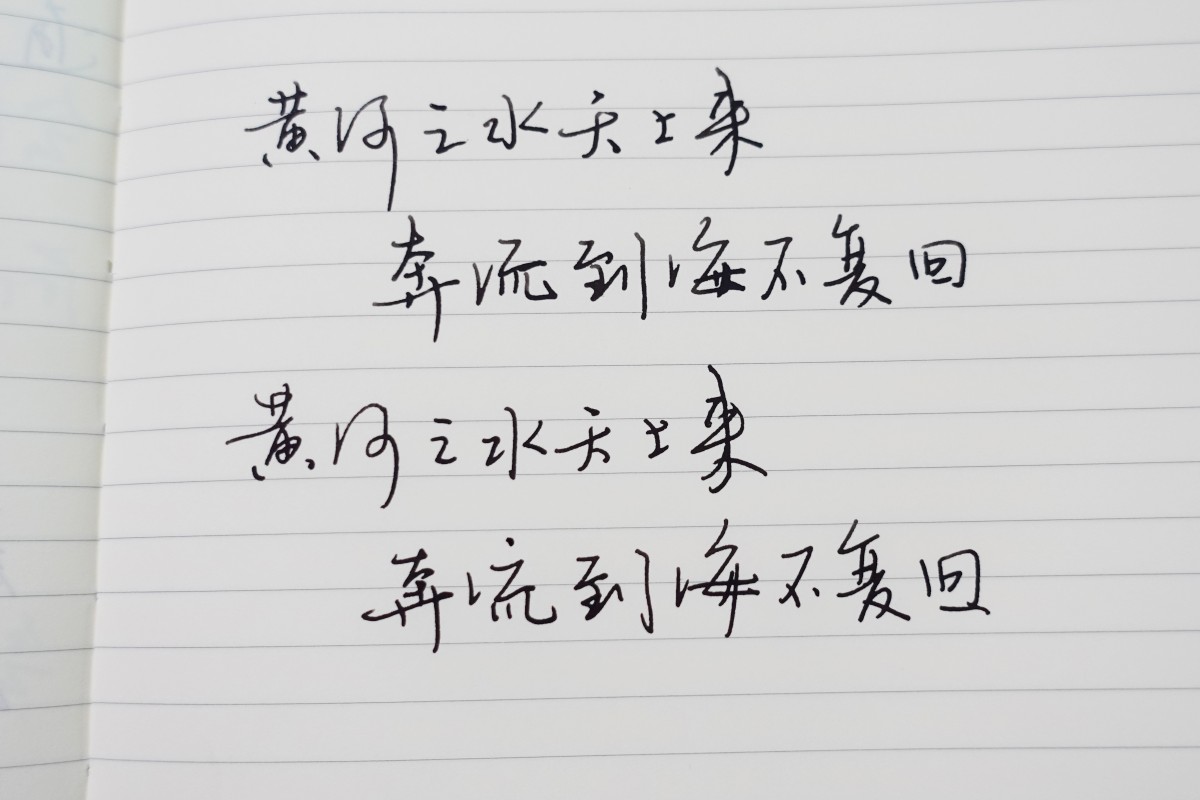 黄河之水天上来
奔流到海不复回
黄河之水天上来
奔流到海不复回